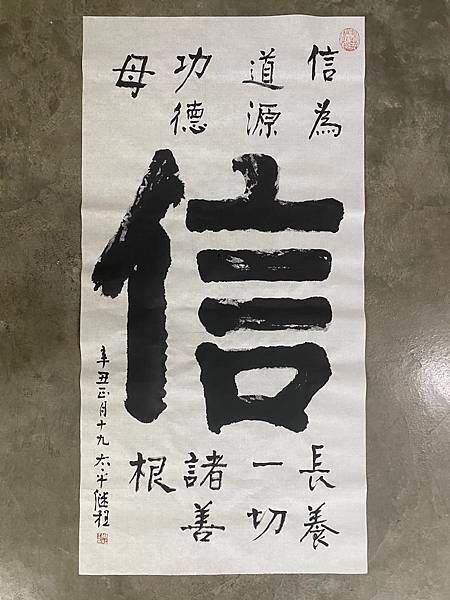 信為
道源
功德
母
信
長養
一切
諸善
根
辛丑正月十九太平繼程